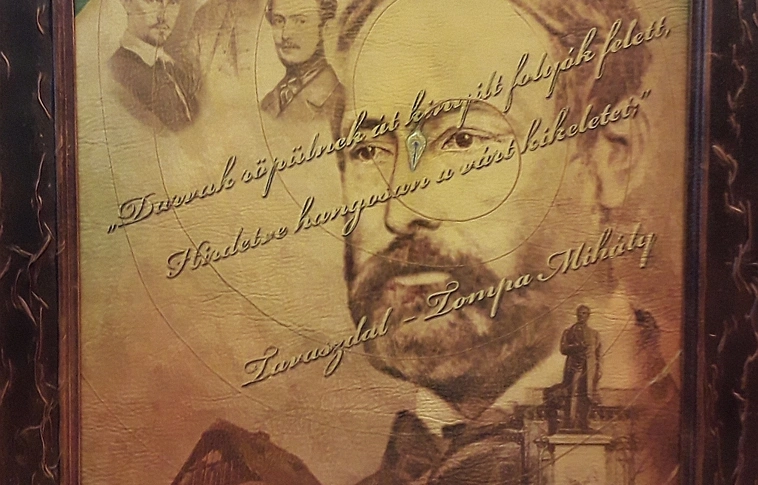 „Darvak röpülnek át kinyilt folyók felett,
Hirdetve hangosan a várt kikeletet;”
Tavaszdal - Tompa Mihály